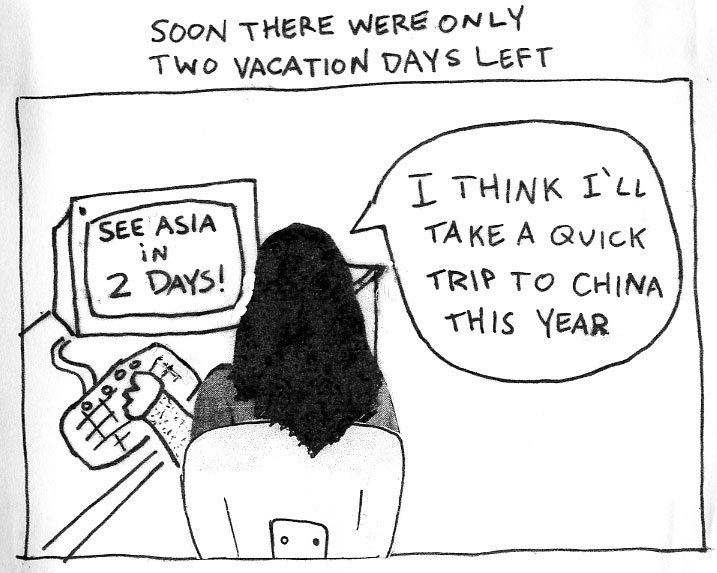 SOON THERE WERE ONLY
TWO VACATION DAYS LEFT
SEE ASIA
iN
2 DAYS!
I THINK I'LL
TAKE A QUICK
TRIP TO CHINA
THIS YEAR